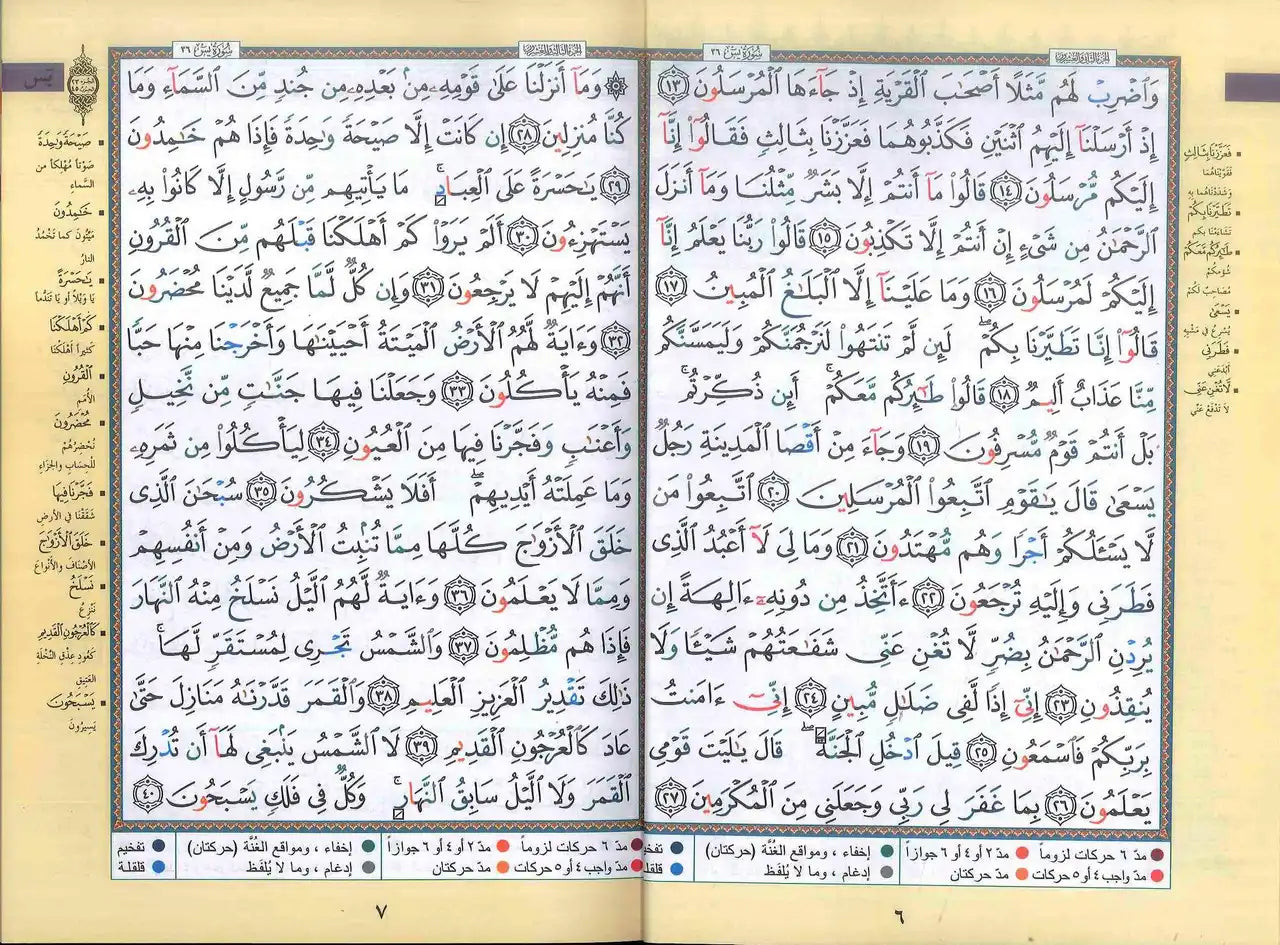 سُورَةُ يسٓ ٣٦
وَٱضْرِبْ لَهُم مَّثَلًا أَصْحَٰبَ ٱلْقَرْيَةِ إِذْ جَآءَهَا ٱلْمُرْسَلُونَ ١٣
إِذْ أَرْسَلْنَآ إِلَيْهِمُ ٱثْنَيْنِ فَكَذَّبُوهُمَا فَعَزَّزْنَا بِثَالِثٍ فَقَالُوٓا۟ إِنَّآ
إِلَيْكُم مُّرْسَلُونَ ١٤ قَالُوا۟ مَآ أَنتُمْ إِلَّا بَشَرٌ مِّثْلُنَا وَمَآ أَنزَلَ
ٱلرَّحْمَٰنُ مِن شَىْءٍ إِنْ أَنتُمْ إِلَّا تَكْذِبُونَ ١٥ قَالُوا۟ رَبُّنَا يَعْلَمُ إِنَّآ
إِلَيْكُمْ لَمُرْسَلُونَ ١٦ وَمَا عَلَيْنَآ إِلَّا ٱلْبَلَٰغُ ٱلْمُبِينُ ١٧
قَالُوٓا۟ إِنَّا تَطَيَّرْنَا بِكُمْ ۖ لَئِن لَّمْ تَنتَهُوا۟ لَنَرْجُمَنَّكُمْ وَلَيَمَسَّنَّكُم
مِّنَّا عَذَابٌ أَلِيمٌ ١٨ قَالُوا۟ طَٰٓئِرُكُم مَّعَكُمْ ۚ أَئِن ذُكِّرْتُم ۚ
بَلْ أَنتُمْ قَوْمٌ مُّسْرِفُونَ ١٩ وَجَآءَ مِنْ أَقْصَا ٱلْمَدِينَةِ رَجُلٌ
يَسْعَىٰ قَالَ يَٰقَوْمِ ٱتَّبِعُوا۟ ٱلْمُرْسَلِينَ ٢٠ ٱتَّبِعُوا۟ مَن
لَّا يَسْـَٔلُكُمْ أَجْرًا وَهُم مُّهْتَدُونَ ٢١ وَمَا لِىَ لَآ أَعْبُدُ ٱلَّذِى
فَطَرَنِى وَإِلَيْهِ تُرْجَعُونَ ٢٢ ءَأَتَّخِذُ مِن دُونِهِۦٓ ءَالِهَةً إِن
يُرِدْنِ ٱلرَّحْمَٰنُ بِضُرٍّ لَّا تُغْنِ عَنِّى شَفَٰعَتُهُمْ شَيْـًٔا وَلَا
يُنقِذُونِ ٢٣ إِنِّىٓ إِذًا لَّفِى ضَلَٰلٍ مُّبِينٍ ٢٤ إِنِّىٓ ءَامَنتُ
بِرَبِّكُمْ فَٱسْمَعُونِ ٢٥ قِيلَ ٱدْخُلِ ٱلْجَنَّةَ ۖ قَالَ يَٰلَيْتَ قَوْمِى
يَعْلَمُونَ ٢٦ بِمَا غَفَرَ لِى رَبِّى وَجَعَلَنِى مِنَ ٱلْمُكْرَمِينَ ٢٧
فَعَزَّزْنَا بِثَالِثٍ
فَقَوَّيْنَاهُمَا
وَشَدَّدْنَاهُمَا بِهِ
تَطَيَّرْنَا بِكُمْ
تَشَاءَمْنَا بِكُم
طَٰٓئِرُكُم مَّعَكُمْ
شُؤْمُكُمْ
مُصَاحِبٌ لَكُمْ
يَسْعَىٰ
يُسْرِعُ فِي مَشْيِهِ
فَطَرَنِى
أَبْدَعَنِي
لَّا تُغْنِ عَنِّى
لَا تَدْفَعْ عَنِّي
مدّ ٦ حركات لزوماً
مدّ ٢ أو ٤ أو ٦ جوازاً
إخفاء ، ومواقع الغُنَّة (حركتان)
مدّ واجب ٤ أو ٥ حركات
مدّ حركتان
إدغام ، وما لا يُلفَظ
٦
سُورَةُ يسٓ ٣٦
يسٓ
۞ وَمَآ أَنزَلْنَا عَلَىٰ قَوْمِهِۦ مِنۢ بَعْدِهِۦ مِن جُندٍ مِّنَ ٱلسَّمَآءِ وَمَا
كُنَّا مُنزِلِينَ ٢٨ إِن كَانَتْ إِلَّا صَيْحَةً وَٰحِدَةً فَإِذَا هُمْ خَٰمِدُونَ
٢٩ يَٰحَسْرَةً عَلَى ٱلْعِبَادِ ۚ مَا يَأْتِيهِم مِّن رَّسُولٍ إِلَّا كَانُوا۟ بِهِۦ
يَسْتَهْزِءُونَ ٣٠ أَلَمْ يَرَوْا۟ كَمْ أَهْلَكْنَا قَبْلَهُم مِّنَ ٱلْقُرُونِ
أَنَّهُمْ إِلَيْهِمْ لَا يَرْجِعُونَ ٣١ وَإِن كُلٌّ لَّمَّا جَمِيعٌ لَّدَيْنَا مُحْضَرُونَ
٣٢ وَءَايَةٌ لَّهُمُ ٱلْأَرْضُ ٱلْمَيْتَةُ أَحْيَيْنَٰهَا وَأَخْرَجْنَا مِنْهَا حَبًّا
فَمِنْهُ يَأْكُلُونَ ٣٣ وَجَعَلْنَا فِيهَا جَنَّٰتٍ مِّن نَّخِيلٍ
وَأَعْنَٰبٍ وَفَجَّرْنَا فِيهَا مِنَ ٱلْعُيُونِ ٣٤ لِيَأْكُلُوا۟ مِن ثَمَرِهِۦ
وَمَا عَمِلَتْهُ أَيْدِيهِمْ ۖ أَفَلَا يَشْكُرُونَ ٣٥ سُبْحَٰنَ ٱلَّذِى
خَلَقَ ٱلْأَزْوَٰجَ كُلَّهَا مِمَّا تُنۢبِتُ ٱلْأَرْضُ وَمِنْ أَنفُسِهِمْ
وَمِمَّا لَا يَعْلَمُونَ ٣٦ وَءَايَةٌ لَّهُمُ ٱلَّيْلُ نَسْلَخُ مِنْهُ ٱلنَّهَارَ
فَإِذَا هُم مُّظْلِمُونَ ٣٧ وَٱلشَّمْسُ تَجْرِى لِمُسْتَقَرٍّ لَّهَا ۚ
ذَٰلِكَ تَقْدِيرُ ٱلْعَزِيزِ ٱلْعَلِيمِ ٣٨ وَٱلْقَمَرَ قَدَّرْنَٰهُ مَنَازِلَ حَتَّىٰ
عَادَ كَٱلْعُرْجُونِ ٱلْقَدِيمِ ٣٩ لَا ٱلشَّمْسُ يَنۢبَغِى لَهَآ أَن تُدْرِكَ
ٱلْقَمَرَ وَلَا ٱلَّيْلُ سَابِقُ ٱلنَّهَارِ ۚ وَكُلٌّ فِى فَلَكٍ يَسْبَحُونَ ٤٠
صَيْحَةً وَٰحِدَةً
صَوْتاً مُهْلِكاً من
السَّماءِ
خَٰمِدُونَ
مَيِّتُونَ كما تَخْمُدُ
النارُ
يَٰحَسْرَةً
يَا وَيْلاً أو يَا تَنَدُّماً
كَمْ أَهْلَكْنَا
كَثِيراً أَهْلَكْنَا
ٱلْقُرُونِ
الأُمَمِ
مُحْضَرُونَ
نُحْضِرُهُمْ
لِلْحِسَابِ والجَزَاءِ
فَجَّرْنَا فِيهَا
شَقَقْنَا فِي الأرضِ
خَلَقَ ٱلْأَزْوَٰجَ
الأَصْنَافَ والأَنْوَاعَ
نَسْلَخُ
نَنْزِعُ
كَٱلْعُرْجُونِ ٱلْقَدِيمِ
كَعُودِ عِذْقِ النَّخْلَةِ
العَتِيقِ
يَسْبَحُونَ
يَسِيرُونَ
مدّ ٦ حركات لزوماً
مدّ ٢ أو ٤ أو ٦ جوازاً
إخفاء ، ومواقع الغُنَّة (حركتان)
تفخيم
مدّ واجب ٤ أو ٥ حركات
مدّ حركتان
إدغام ، وما لا يُلفَظ
قلقلة
٧